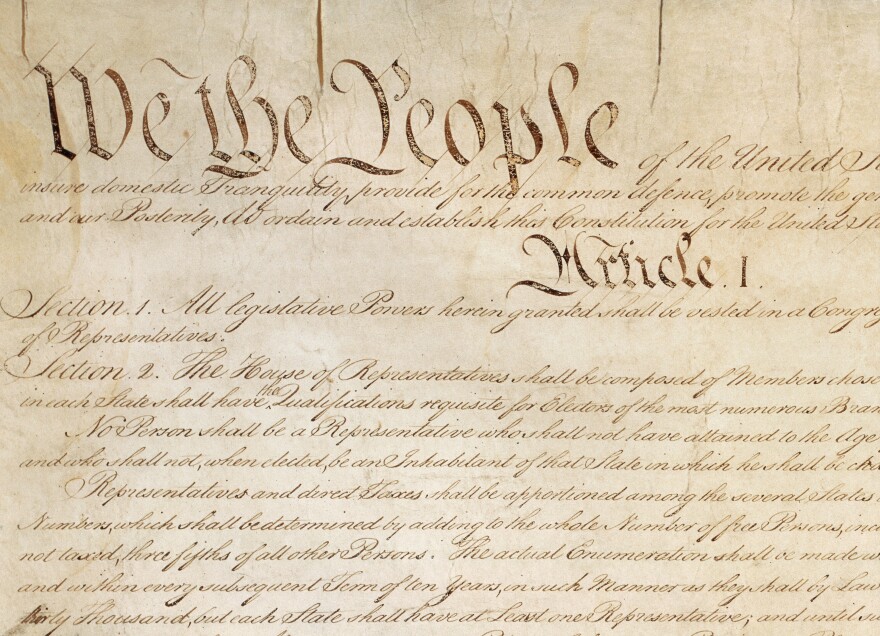 We the People of the United
insure domestic Tranquility, provide for the common defence, promote the
and our Posterity, do ordain and establish this Constitution for the United
Article. I.
Section. 1. All legislative Powers herein granted shall be vested in a
of Representatives.
Section. 2. The House of Representatives shall be composed of Members
the
in each State shall have Qualifications requisite for Electors of the most numerous
No Person shall be a Representative who shall not have attained to the Age
and who shall not, when elected, be an Inhabitant of that State in which he shall be
Representatives and direct Taxes shall be apportioned among the several States
Numbers, which shall be determined by adding to the whole Number of free Persons,
not taxed, three fifths of all other Persons. The actual Enumeration shall be made
and within every subsequent Term of ten Years, in such Manner as they shall by Law
thirty Thousand, but each State shall have at Least one Representative; and until